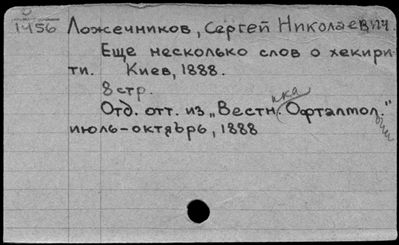 1456 Ложечников, Сергей Николаевич.
Еще несколько слов о хекири-
ти. Киев, 1888.
8 стр.
Отд. отт. из „Вестника Офталмологии"
июль-октябрь, 1888